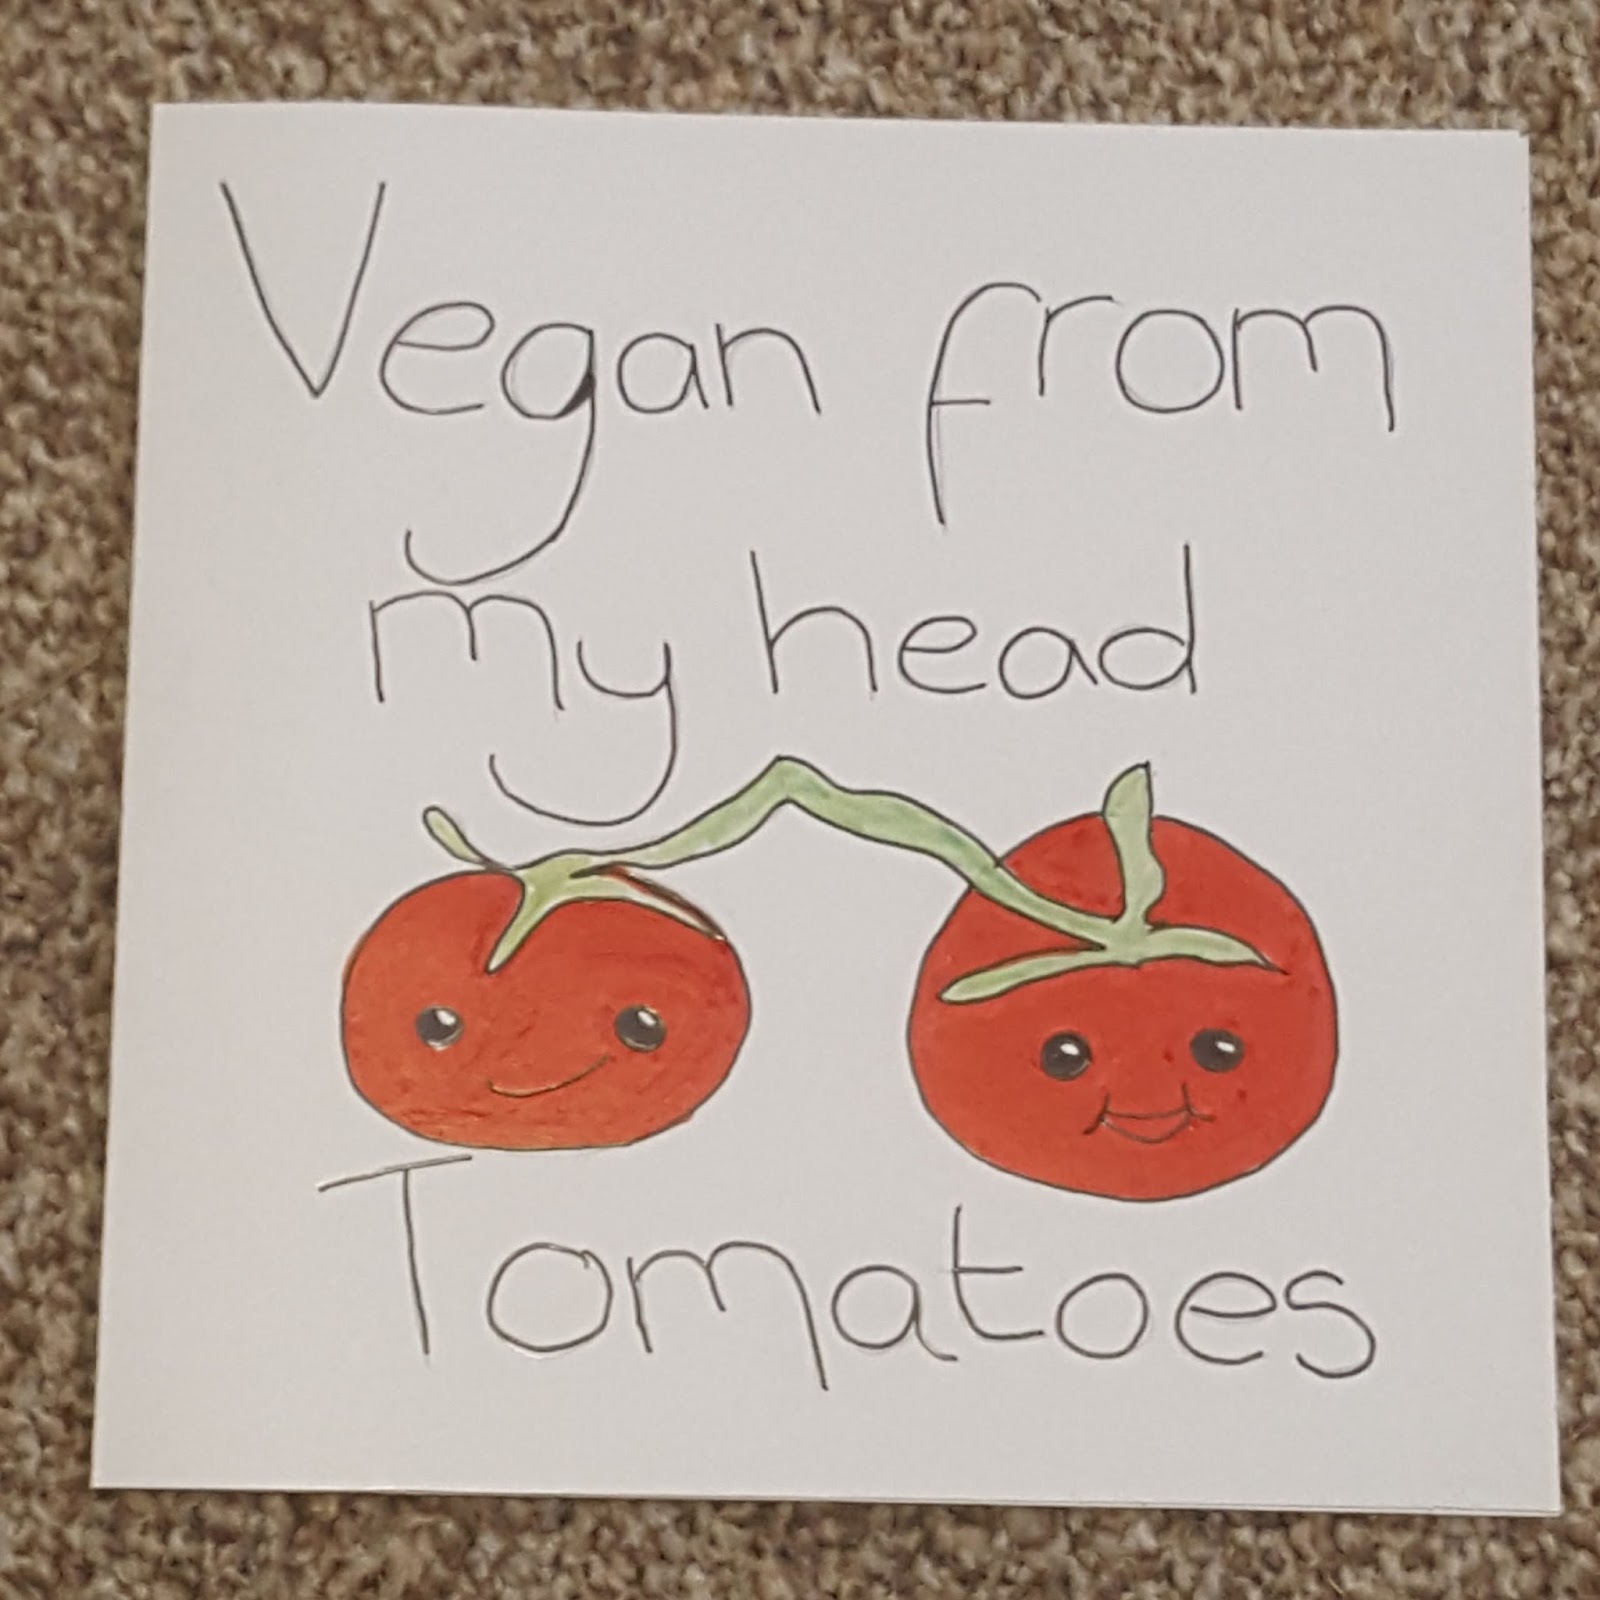 Vegan from
my head
Tomatoes